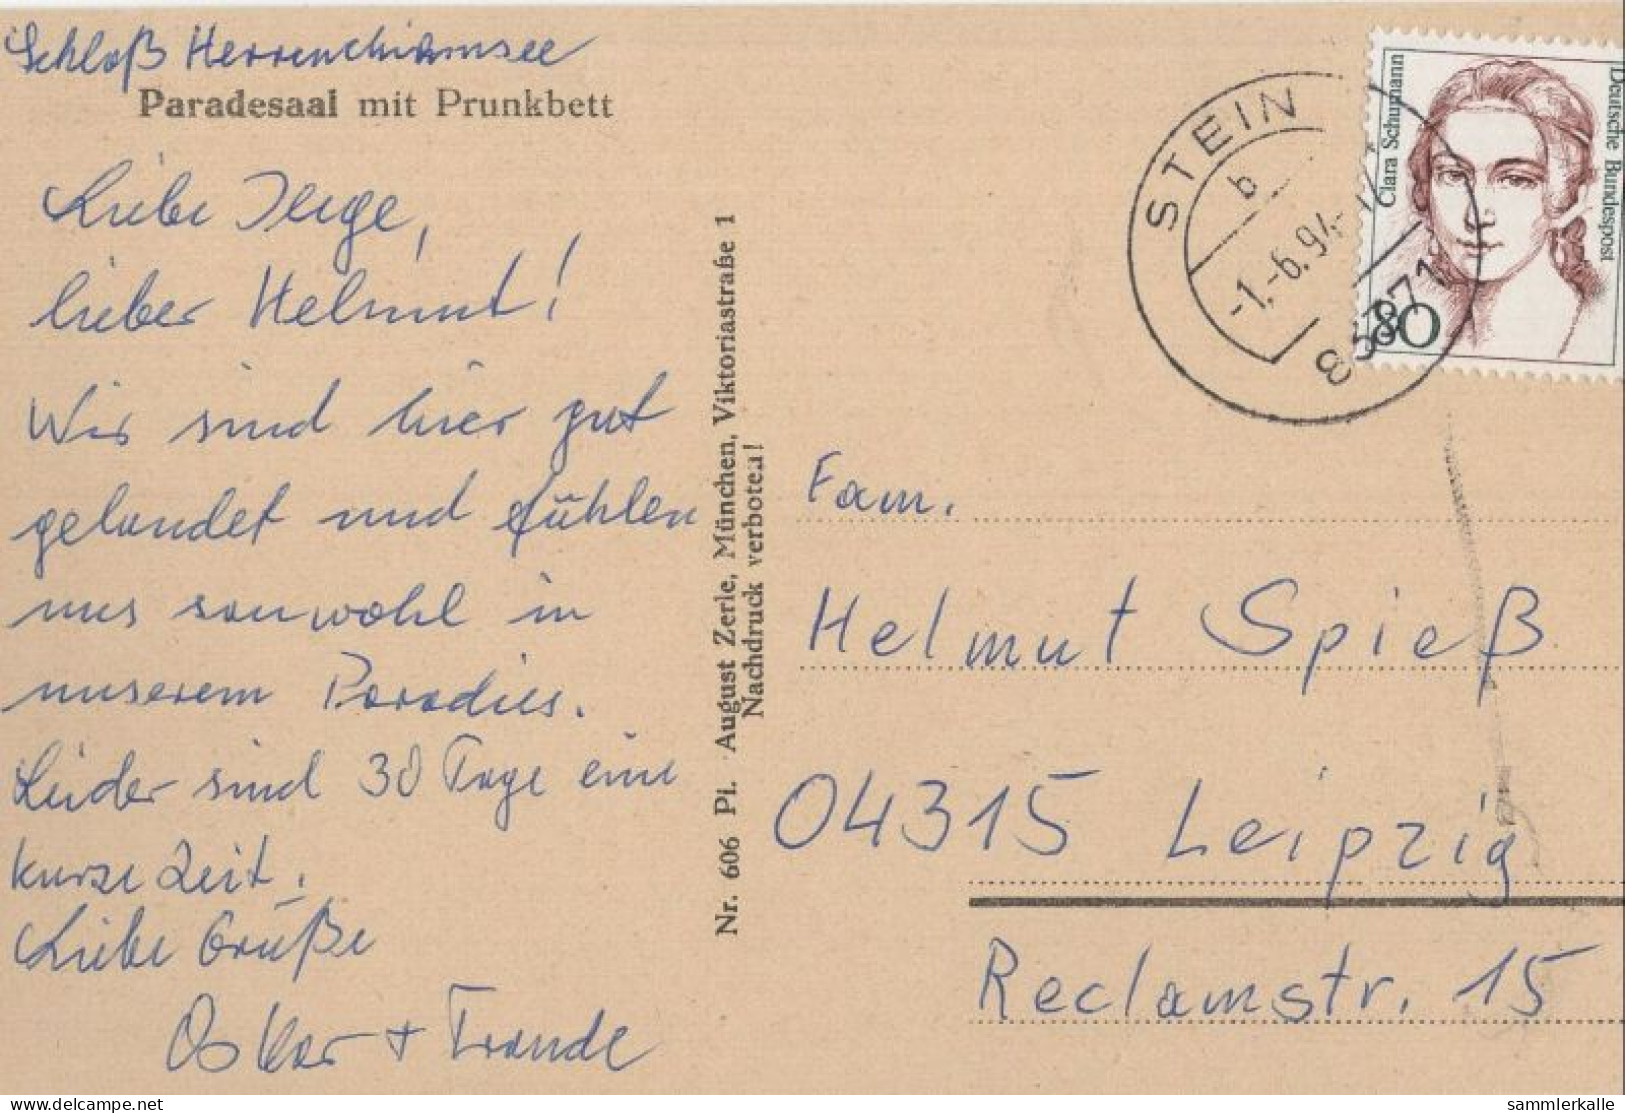 Schloß Herrenchiemsee
Paradesaal mit Prunkbett
Liebe Inge,
lieber Helmut!
Wir sind hier gut
gelandet und fühlen
uns sauwohl in
unserem Paradies.
Leider sind 30 Tage eine
kurze Zeit.
Liebe Grüße
Oskar +
Nr. 606 Pi. August Zerle, München, Viktoriastraße 1
Nachdruck verboten!
STEIN
b
-1.-6.94-
83371
Clara Schumann
Deutsche Bundespost
80
Fam.
Helmut Spieß
04315 Leipzig
Reclamstr. 15
Posted by Delcampe.net
sammlerkalle